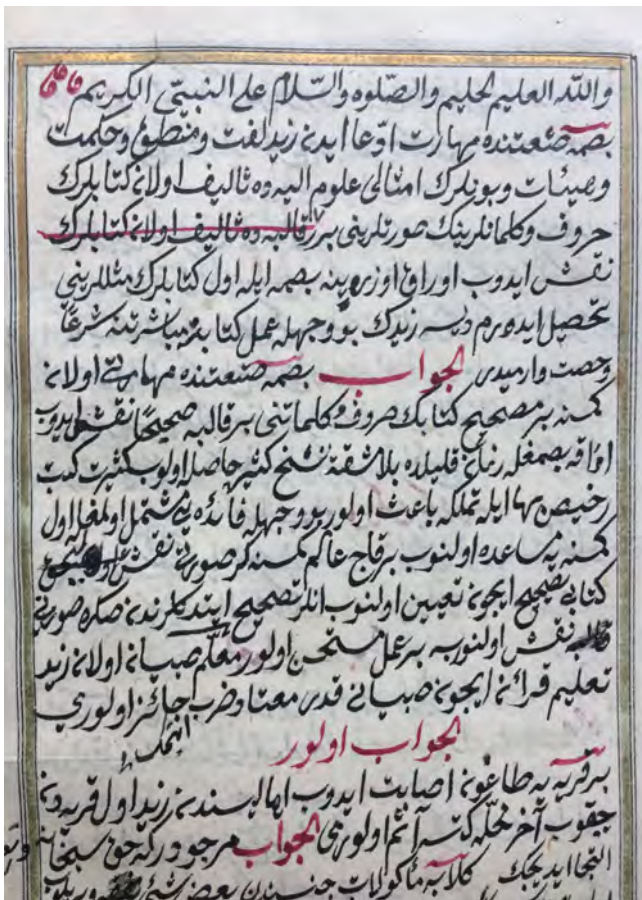 والله العليم الحليم والصلوة والسلام على النبى الكريم
بصمه صنعتنده مهارت ادعا ايدن زيد لغت ومنطق وحكمت
وهيئات وبونلرك امثالى علوم اليه ده تأليف اولان كتابلرك
حروف وكلماتلرينك صورتلرينى بر قالبه ده تأليف اولان كتابلرك
نقش ايدوب اوراق اوزرينه بصمه ايله اول كتابلرك مثللرينى
تحصيل ايدرم ديسه زيدك بو وجهله عمل كتابته مباشرتنه شرعا
رخصت وارميدر الجواب بصمه صنعتنده مهارتى اولان
كمسنه بر مصحح كتابك حروف وكلماتنى بر قالبه صحيحا نقش ايدوب
اوراقه بصمغله زمان قليلده بلا مشقة نسخ كثيره حاصله اولوب كثرت كتب
رخيص بها ايله تملكه باعث اولور بو وجهله فائده يى مشتمل اولمغله اول
كمسنه يه مساعده اولنوب برقاج عالم كمسنه لر صورتى نقش اولنجق
كتابى تصحيح ايجون تعيين اولنوب انلر تصحيح ايتدكلرندن صكره صورتى
نقش اولنورسه بر عمل مستحسن اولور معلم صبيان اولان زيد
تعليم قرآن ايجون صبيانى قدر معتاد ضرب جائز اولورمى
الجواب اولور
بر قريه يه طاعون اصابت ايدوب اهاليسندن زيد اول قريه دن
چقوب آخر محله كتسه آثم اولورمى الجواب مرجودركه حق سبحانه
التجا ايديجك كلابه مأكولات جنسندن بعض شئ